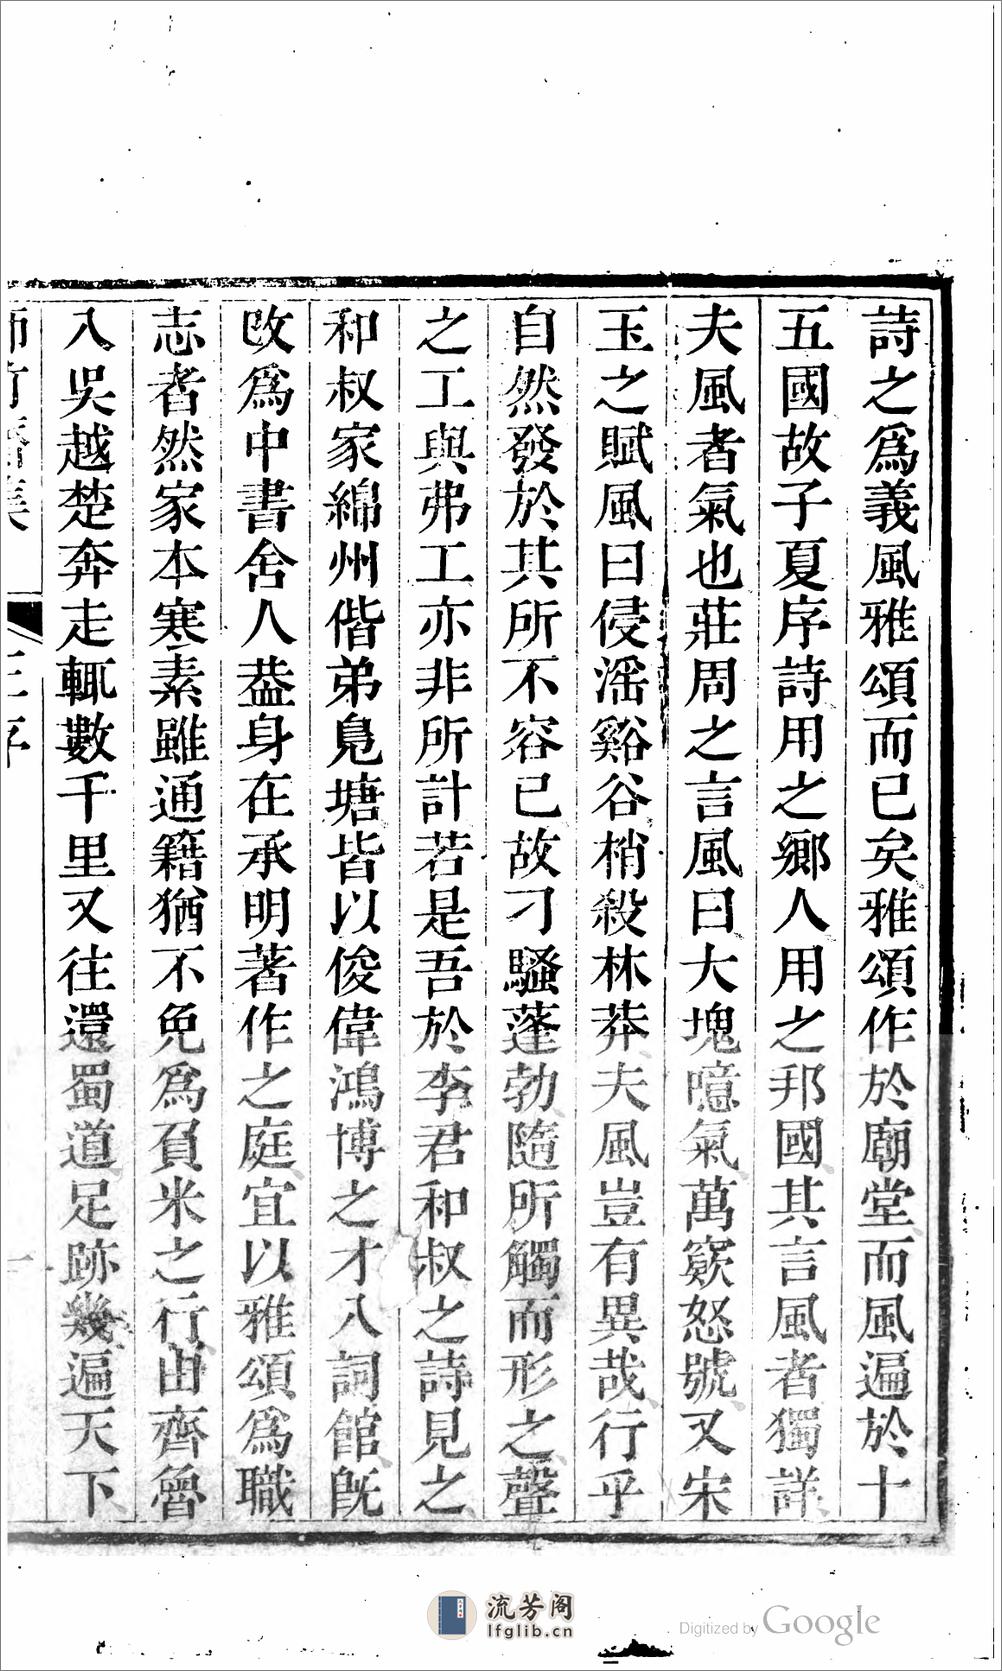 詩之爲義風雅頌而已矣雅頌作於廟堂而風遍於十
五國故子夏序詩用之鄉人用之邦國其言風者獨詳
夫風者氣也莊周之言風曰大塊噫氣萬竅怒號又宋
玉之賦風曰侵滛谿谷梢殺林莽夫風豈有異哉行乎
自然發於其所不容已故刁騷蓬勃隨所觸而形之聲
之工與弗工亦非所計若是吾於李君和叔之詩見之
和叔家綿州偕弟鳧塘皆以俊偉鴻博之才入詞館旣
改爲中書舍人葢身在承明著作之庭宜以雅頌爲職
志者然家本寒素雖通籍猶不免爲負米之行由齊魯
入吳越楚奔走輒數千里又往還蜀道足跡幾遍天下
王序
一
流芳阁
lfglib.cn
Digitized by Google